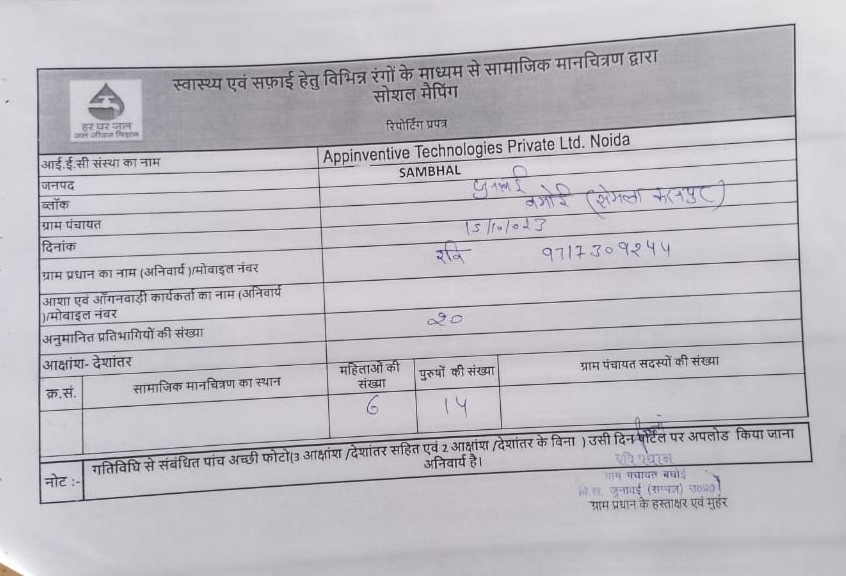 स्वास्थ्य एवं सफ़ाई हेतु विभिन्न रंगों के माध्यम से सामाजिक मानचित्रण द्वारा
सोशल मैपिंग
रिपोर्टिंग प्रपत्र
हर घर जल
जल जीवन मिशन
आई.ई.सी संस्था का नाम Appinventive Technologies Private Ltd. Noida
जनपद SAMBHAL
ब्लॉक
ग्राम पंचायत
दिनांक 15/10/023
ग्राम प्रधान का नाम (अनिवार्य )/मोबाइल नंबर रवि 9717309244
आशा एवं आँगनवाड़ी कार्यकर्ता का नाम (अनिवार्य
)/मोबाइल नंबर
अनुमानित प्रतिभागियों की संख्या 20
आक्षांश- देशांतर
क्र.सं. सामाजिक मानचित्रण का स्थान महिलाओं की संख्या पुरुषों की संख्या ग्राम पंचायत सदस्यों की संख्या
6 14
नोट :- गतिविधि से संबंधित पांच अच्छी फोटो(3 आक्षांश /देशांतर सहित एवं 2 आक्षांश /देशांतर के बिना ) उसी दिन पोर्टल पर अपलोड किया जाना
अनिवार्य है।
ग्राम पंचायत बघोई
वि.ख. जुनावई (सम्भल) उ०प्र०
ग्राम प्रधान के हस्ताक्षर एवं मुहर